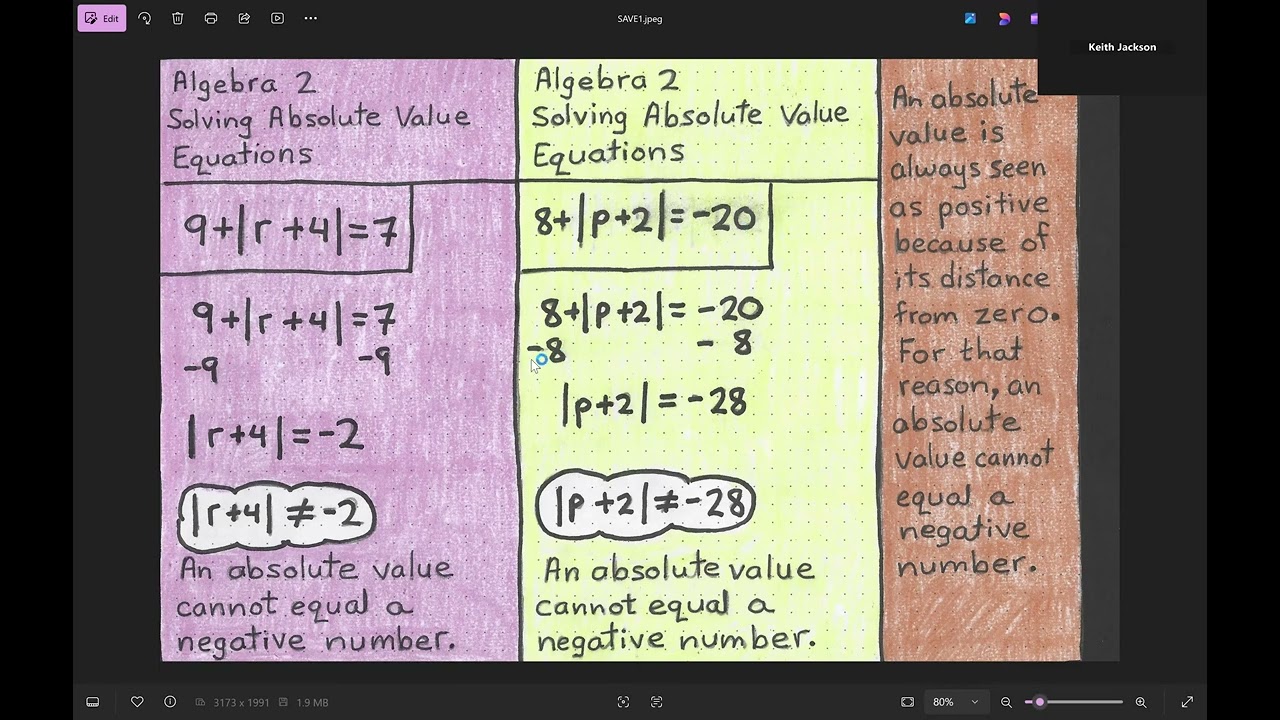 Edit
SAVE1.jpeg
Keith Jackson
Algebra 2
Solving Absolute Value
Equations
9+|r+4|=7
9+|r+4|=7
-9 -9
|r+4|=-2
|r+4|≠-2
An absolute value
cannot equal a
negative number.
Algebra 2
Solving Absolute Value
Equations
8+|p+2|=-20
8+|p+2|=-20
-8 -8
|p+2|=-28
|p+2|≠-28
An absolute value
cannot equal a
negative number.
An absolute
value is
always seen
as positive
because of
its distance
from zero.
For that
reason, an
absolute
value cannot
equal a
negative
number.
3173 x 1991 1.9 MB
80%